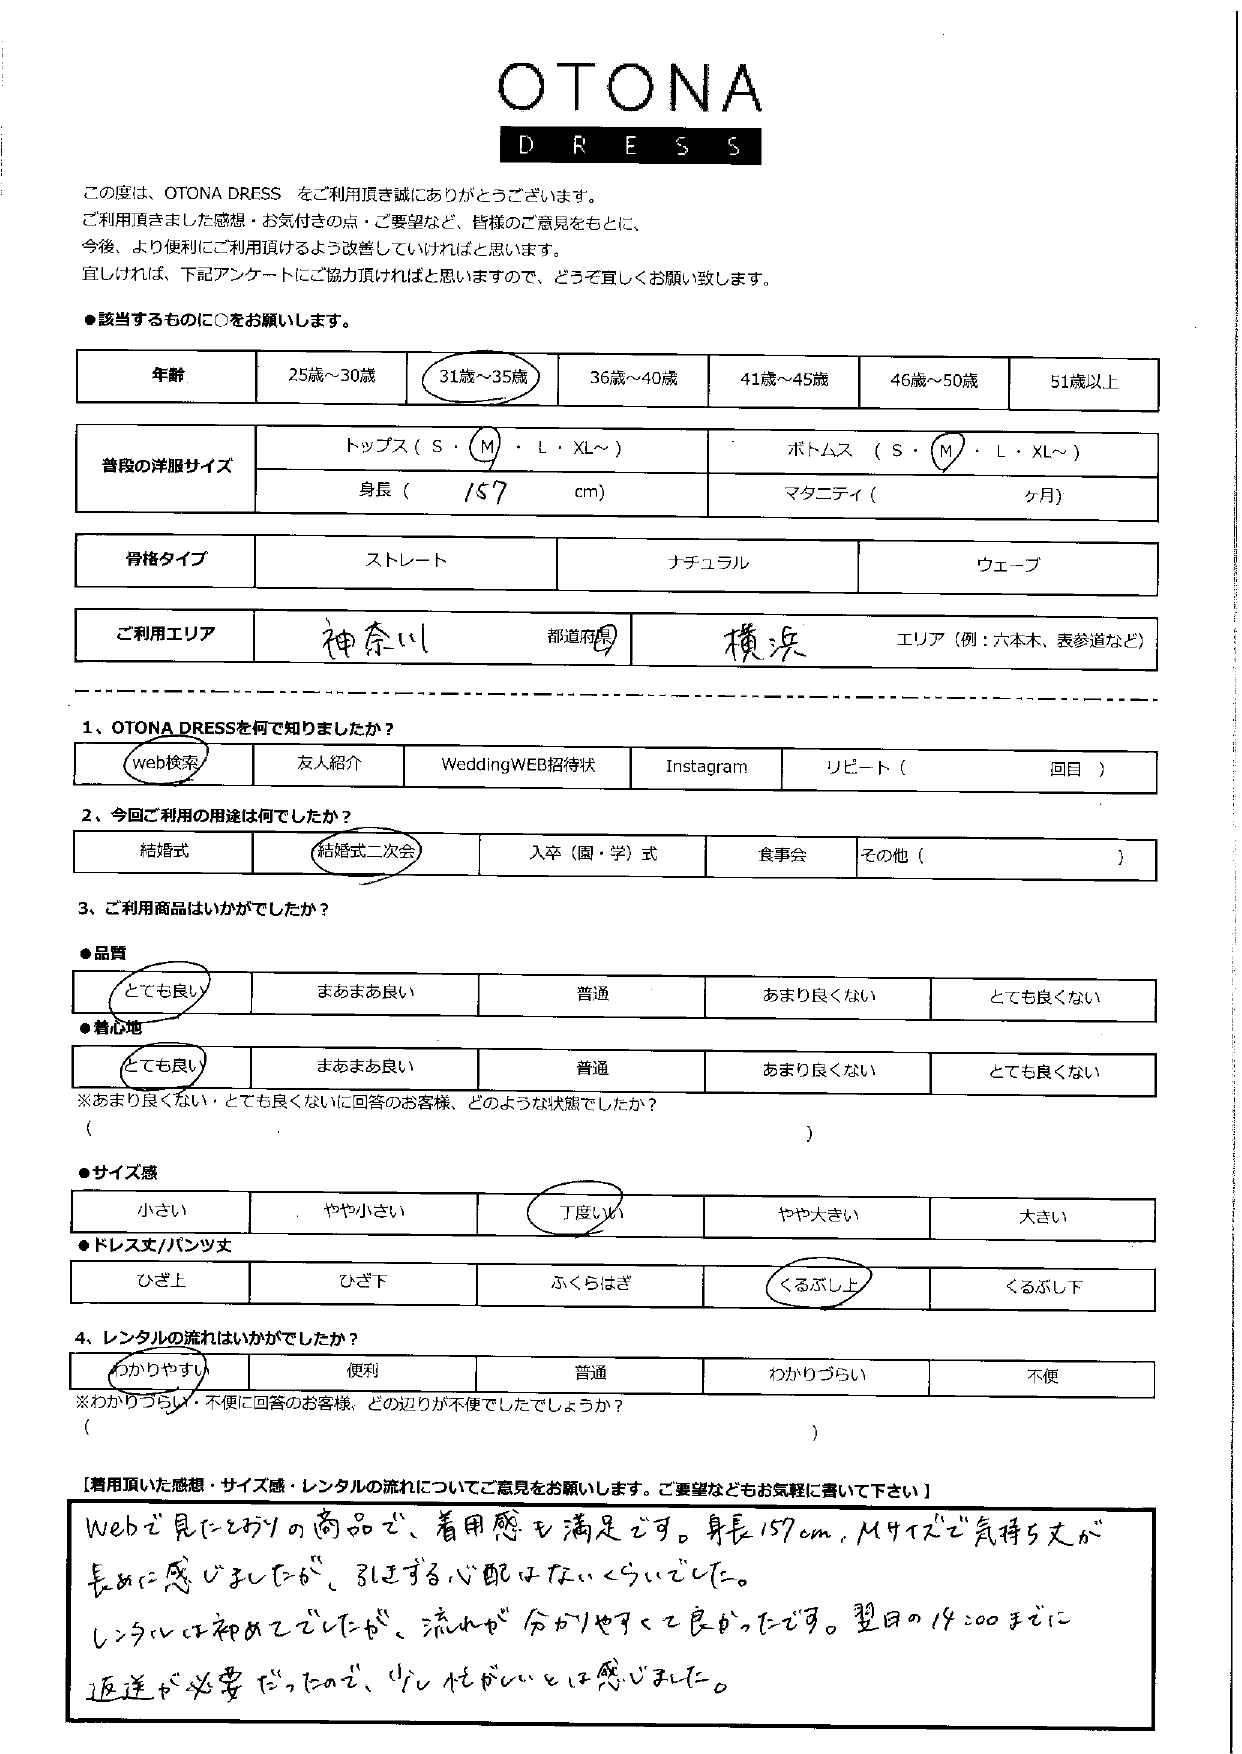 OTONA
DRESS
この度は、OTONA DRESS をご利用頂き誠にありがとうございます。
ご利用頂きました感想・お気付きの点・ご要望など、皆様のご意見をもとに、
今後、より便利にご利用頂けるよう改善していければと思います。
宜しければ、下記アンケートにご協力頂ければと思いますので、どうぞ宜しくお願い致します。
●該当するものに○をお願いします。
年齢 25歳～30歳 31歳～35歳 36歳～40歳 41歳～45歳 46歳～50歳 51歳以上
普段の洋服サイズ トップス ( S ・ M ・ L ・ XL～ ) ボトムス ( S ・ M ・ L ・ XL～ )
身長 ( 157 cm) マタニティ ( ヶ月)
骨格タイプ ストレート ナチュラル ウェーブ
ご利用エリア 神奈川 都道府県 横浜 エリア（例：六本木、表参道など）
1、OTONA DRESSを何で知りましたか？
web検索 友人紹介 WeddingWEB招待状 Instagram リピート ( 回目 )
2、今回ご利用の用途は何でしたか？
結婚式 結婚式二次会 入卒（園・学）式 食事会 その他 ( )
3、ご利用商品はいかがでしたか？
●品質
とても良い まあまあ良い 普通 あまり良くない とても良くない
●着心地
とても良い まあまあ良い 普通 あまり良くない とても良くない
※あまり良くない・とても良くないに回答のお客様、どのような状態でしたか？
( )
●サイズ感
小さい やや小さい 丁度いい やや大きい 大きい
●ドレス丈/パンツ丈
ひざ上 ひざ下 ふくらはぎ くるぶし上 くるぶし下
4、レンタルの流れはいかがでしたか？
わかりやすい 便利 普通 わかりづらい 不便
※わかりづらい・不便に回答のお客様、どの辺りが不便でしたでしょうか？
( )
【着用頂いた感想・サイズ感・レンタルの流れについてご意見をお願いします。ご要望などもお気軽に書いて下さい】
Webで見たとおりの商品で、着用感も満足です。身長157cm，Mサイズで気持ち丈が
長めに感じましたが、引きずる心配はないくらいでした。
レンタルは初めてでしたが、流れが分かりやすくて良かったです。翌日の14:00までに
返送が必要だったので、少し忙がしいとは感じました。